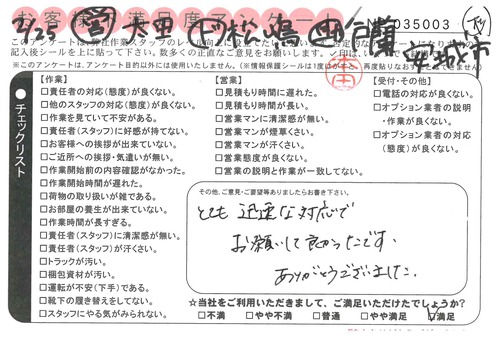 お客様満足度アンケート
7/25
035003
安城市
このアンケートは、弊社作業スタッフの
記入後シールを上に貼って下さい。数多くの正直なご意見をお願いします。✓印は、
※このアンケートは、アンケート目的以外には使用いたしません。(※情報保護シールは1度はがすと、再度貼りなおすことはできません)
チェックリスト
【作業】
□責任者の対応(態度)が良くない。
□他のスタッフの対応(態度)が良くない。
□作業を見ていて不安がある。
□責任者(スタッフ)に好感が持てない。
□お客様への挨拶が出来ていない。
□ご近所への挨拶・気遣いが無い。
□作業開始前の内容確認がなかった。
□作業開始時間が遅れた。
□荷物の取り扱いが雑である。
□お部屋の養生が出来ていない。
□作業時間が長すぎる。
□責任者(スタッフ)に清潔感が無い。
□責任者(スタッフ)が汗くさい。
□トラックが汚い。
□梱包資材が汚い。
□運転が不安(下手)である。
□靴下の履き替えをしてない。
□スタッフにやる気がみられない。
【営業】
□見積もり時間に遅れた。
□見積もり時間が長い。
□営業マンに清潔感が無い。
□営業マンが煙草くさい。
□営業マンが汗くさい。
□営業態度が良くない。
□営業の説明と作業が一致してない。
【受付・その他】
□電話の対応が良くない。
□オプション業者の説明
・作業が良くない。
□オプション業者の対応
(態度)が良くない。
その他、ご意見・ご要望等ありましたらお書き下さい。
とても迅速な対応で
お願いして良かったです。
ありがとうございました。
☆当社をご利用いただきまして、ご満足いただけたでしょうか?
□不満 □やや不満 □普通 □やや満足 ☑満足